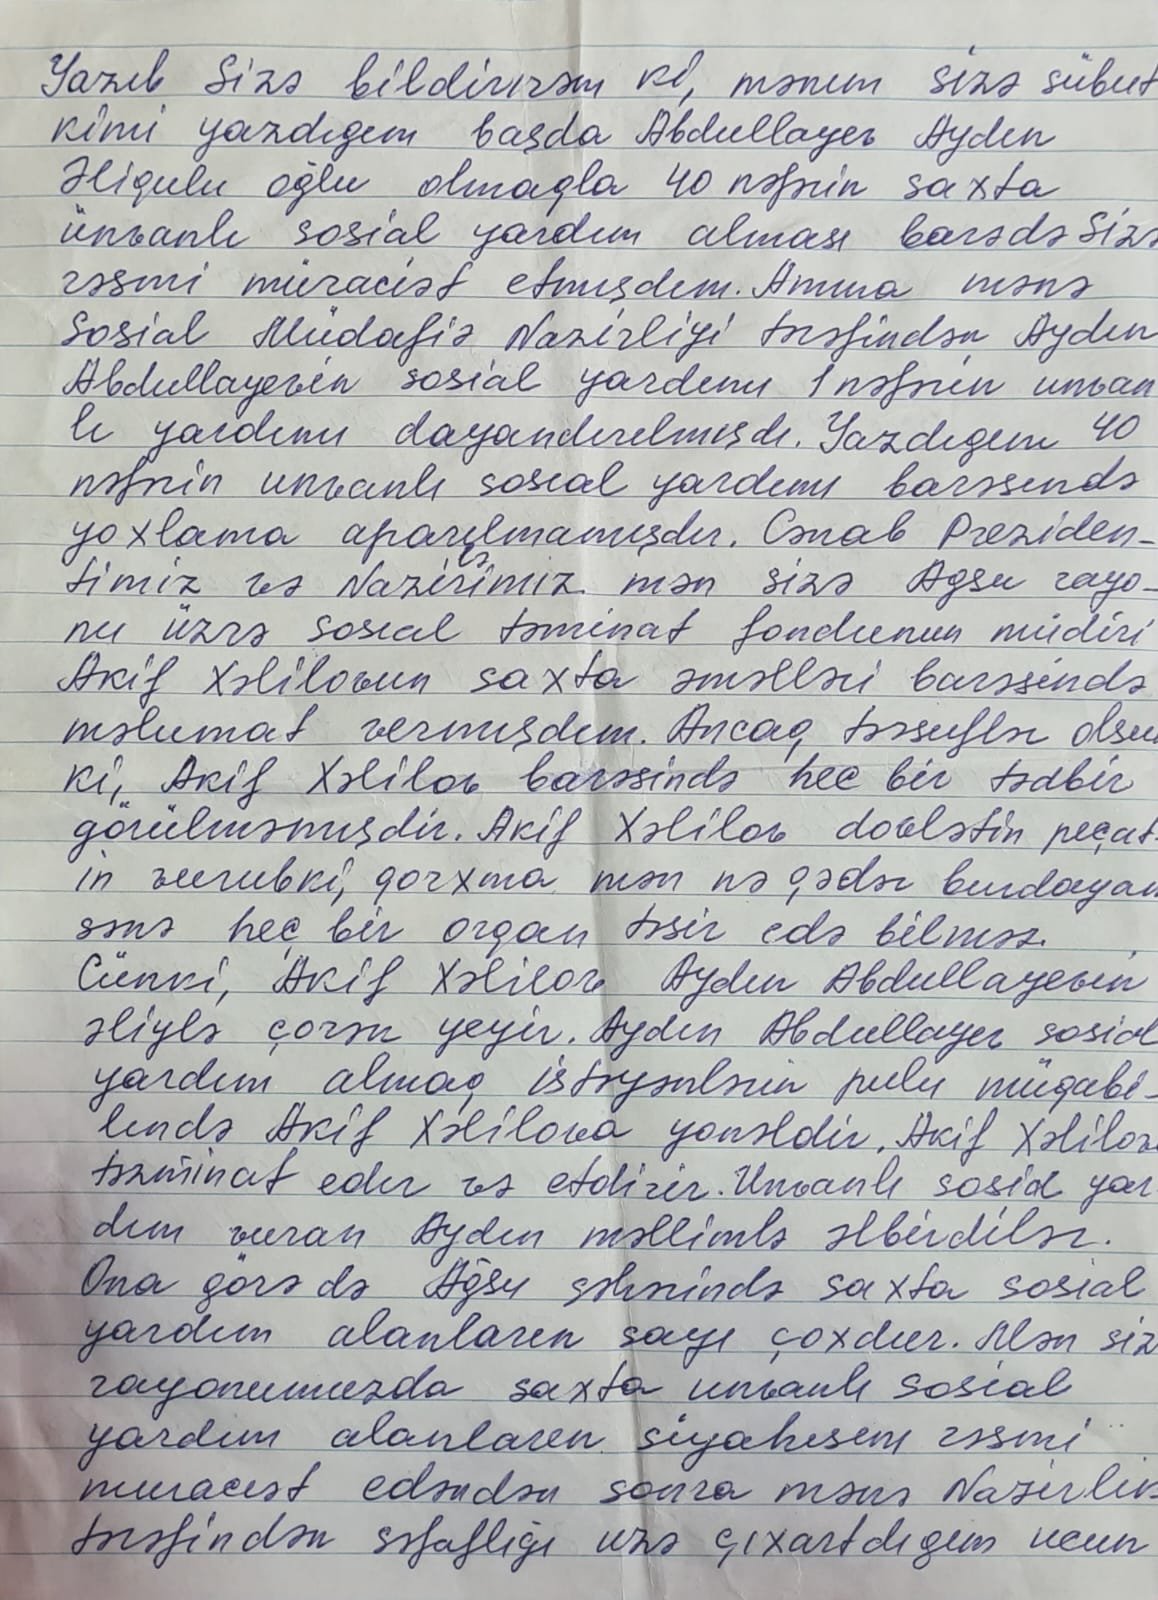 Yazıb Sizə bildirirəm ki, mənim sizə sübut
kimi yazdıgım başda Abdullayev Aydın
Əliqulu oğlu olmaqla 40 nəfərin saxta
ünvanlı sosial yardım alması barədə Sizə
rəsmi müraciət etmişdim. Amma mənə
Sosial Müdafiə Nazirliyi tərəfindən Aydın
Abdullayevin sosial yardımı 1 nəfərin unvan
lı yardımı dayandırılmışdı. Yazdıgım 40
nəfərin unvanlı sosial yardımı barəsində
yoxlama aparılmamışdır. Cənab Preziden-
timiz və Nazirimiz mən sizə Agsu rayo-
nu üzrə sosial təminat fondunun müdiri
Akif Xəlilovun saxta əməlləri barəsində
məlumat vermişdim. Ancaq təsuflər olsun
ki, Akif Xəlilov barəsində hec bir tədbir
görülməmişdir. Akif Xəlilov dovlətin peçat-
in vurubki, qorxma mən nə qədər burdayam
sənə heç bir orqan təsir edə bilməz.
Cünki, Akif Xəlilov Aydın Abdullayevin
əliylə çorək yeyir. Aydın Abdullayev sosial
yardım almaq istəyənlərin pulu müqabi-
lində Akif Xəlilova yonəldir, Akif Xəlilov
təzminat edir və etdirir. Unvanlı sosial yar
dım vuran Aydın məllimlə əlbirdilər.
Ona görə də Ağsu şəhərində saxta sosial
yardım alanların sayı çoxdur. Mən siz
rayonumuzda saxta unvanlı sosial
yardım alanların siyahısını rəsmi
muraciət edəndən sonra mənə Nazirlik
tərəfindən səfaflığı uzə çıxartdıgım ucun